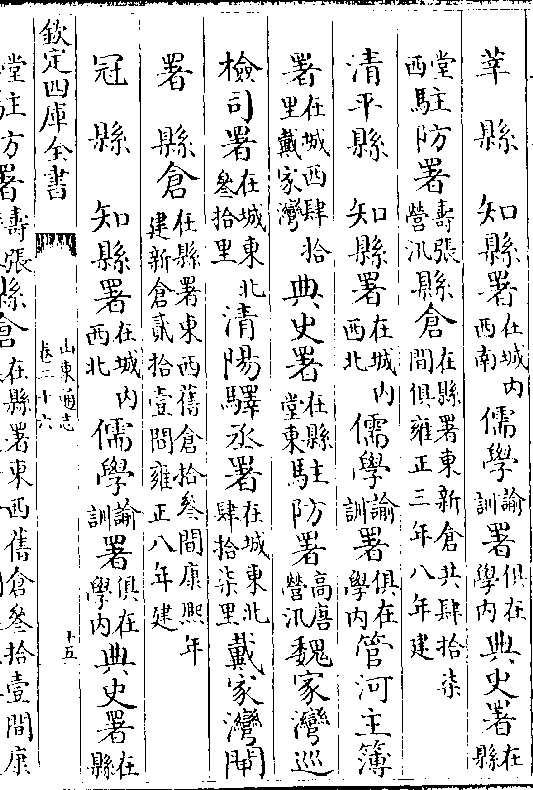 莘縣　知縣署在城内西南儒學諭訓署俱在學内典史署在縣
堂西駐防署壽張營汛縣倉在縣署東新倉共肆拾柒間俱雍正三年八年建
清平縣　知縣署在城内西北儒學諭訓署俱在學内管河主簿
署在城西肆拾里戴家灣典史署在縣堂東駐防署高唐營汛魏家灣巡
檢司署在城東北叁拾里清陽驛丞署在城東北肆拾柒里戴家灣閘
署縣倉在縣署東西舊倉拾叁間康熙年建新倉貳拾壹間雍正八年建
冠縣　知縣署在城内西北儒學諭訓署俱在學内典史署在縣
欽定四庫全書　山東通志卷二十六　十五
堂駐方署壽張縣倉在縣署東西舊倉叁拾壹間康